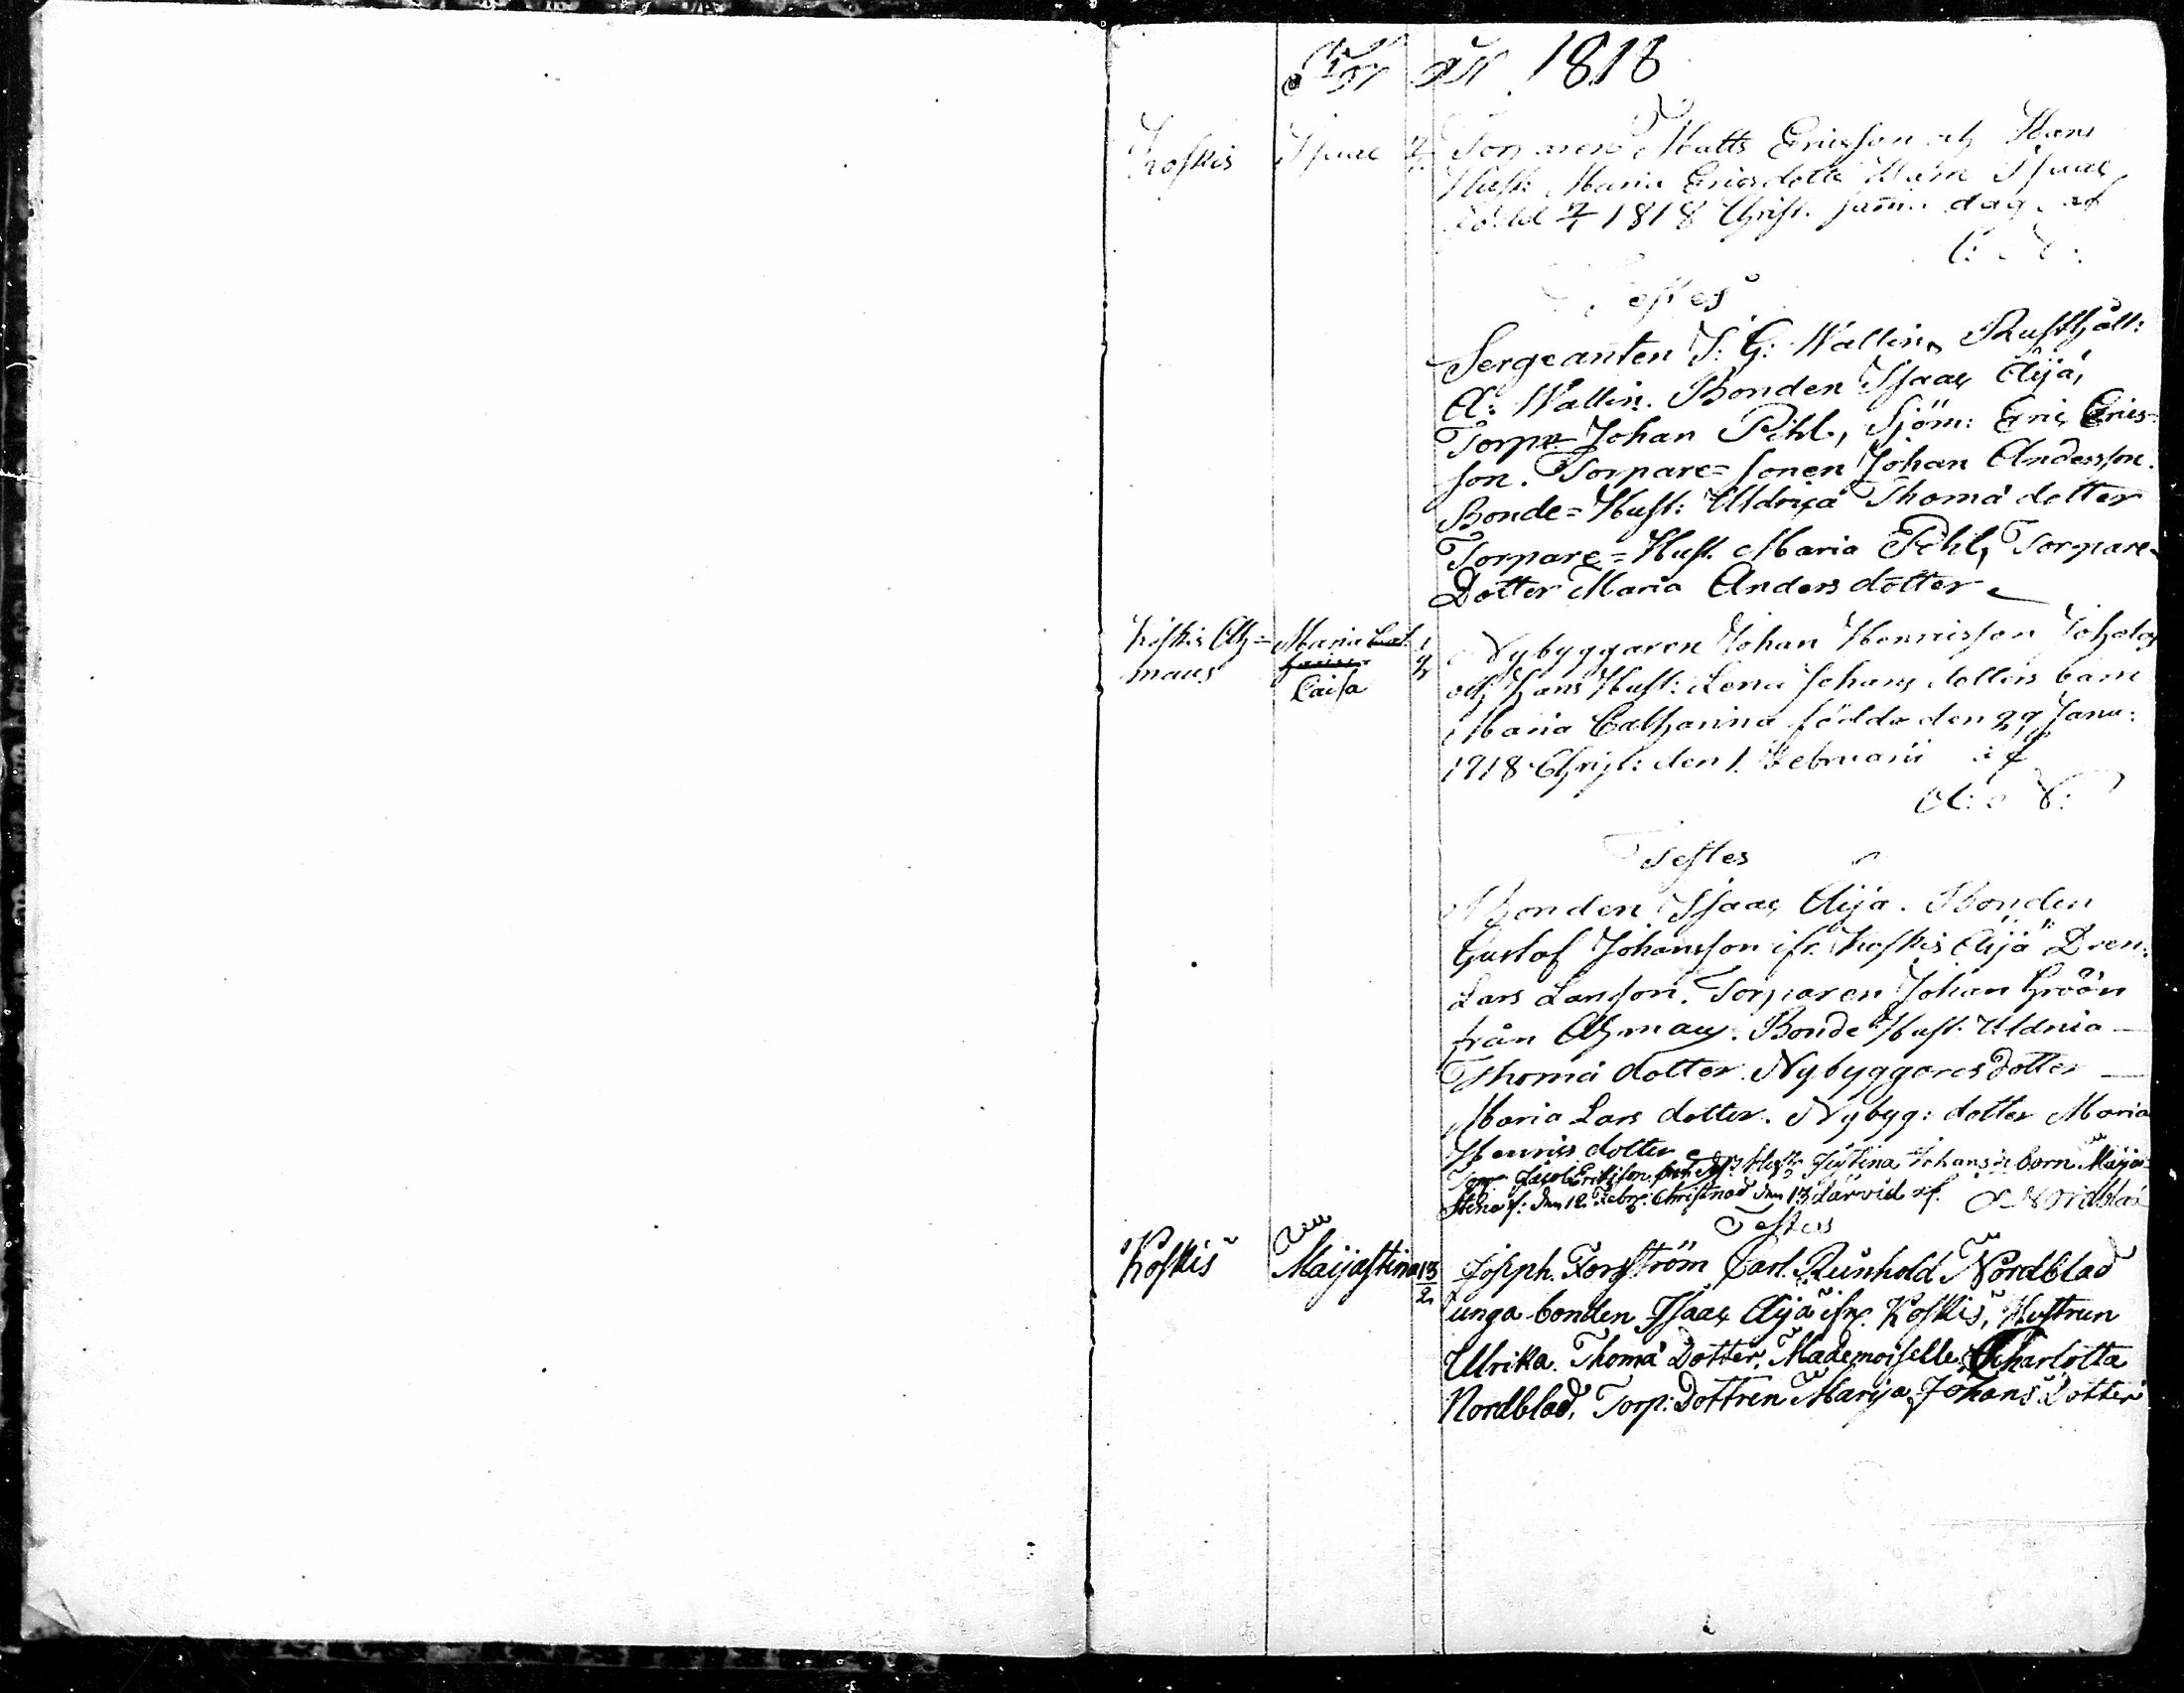 För år 1818
Koskis Isaac 7/1 Torparens Matts Ericsson och Hans
Hust: Maria Ericsdotters barn Isaac
född 7/1 1818 Christ. samma dag af
Testes
Sergeanten I: G: Wallin, Rusthåll:
A: Wallin. Bonden Isaac Äijä,
Torp: Johan Pihl, Sjöm: Eric Erics-
son. Torpare=sonen Johan Andersson.
Bonde=Hust: Uldrica Thomä dotter
Torpare=Hust. Maria Pihl, Torpare-
Dotter Maria Andersdotter
Koskis Ah= Maria 1/2 Nybyggaren Johan Henricsson
maus Caisa och hans Hust: Lena Johans dotters barn
Maria Catharina födda den 29 Janu:
1818 Christ: den 1. Februarii af
A: N:
Testes
Bonden Isaac Äijä. Bonden
Gustaf Johansson ifr. Koskis Äijä Dren:
Lars Larsson. Torparen Johan Gröön
från Ahmaus. Bonde Hust. Uldrica
Thomä dotter. Nybyggaresdotter
Maria Lars dotter. Nybyg: dotter Maria
Henrics dotter
Torp Jacob Ericksson och Hustr Justina Johansd: barn Maija
Stina f: den 12 Febr: Christnad den 13 därvid af. Nordblad
Testes
Koskis Maijastina 13/2 Joseph. Forsström Carl. Reinhold Nordblad
unga bonden Isaac Äijä ifr. Koskis, Hustrun
Ulrika. Thomä Dotter, Mademoiselle Charlotta
Nordblad, Torp: Dottren Marija Johans Dotter